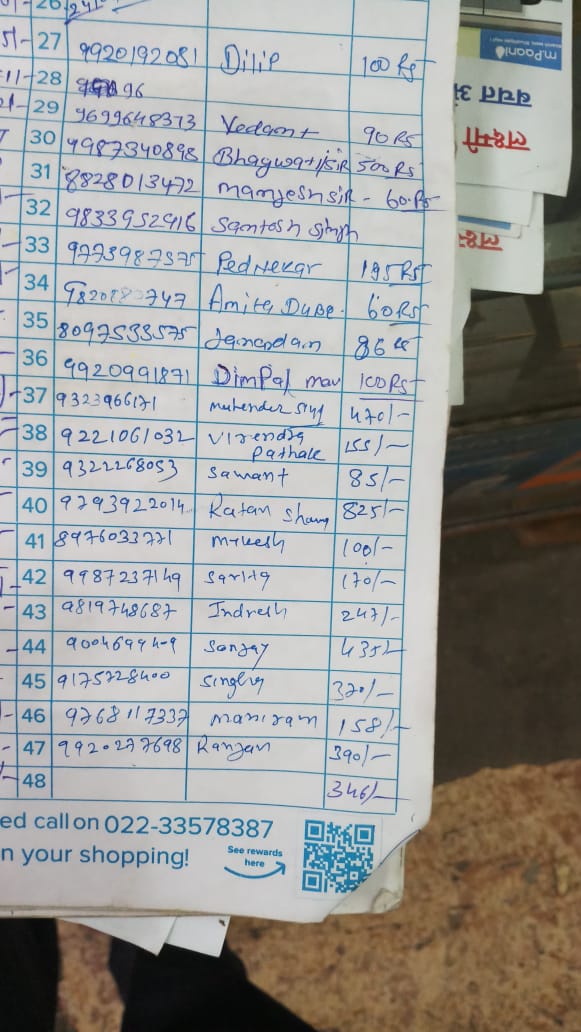 27 9920192081 Dilip 100 Rs
28 96
29 9699648373 Vedant 90 Rs
30 9987340898 Bhagwatiji sir 500 Rs
31 8828013472 Manjesh sir - 60 Rs
32 9833952916 Santosh singh
33 9773987375 Pednekar 195 Rs
34 Amita Dube. 60 Rs
35 8097533575 Janardan 86
36 9920991871 Dimpal mav 100 Rs
37 9323966171 470/-
38 9221061032 Virendra Pathak 155/-
39 9322268053 Sawant 85/-
40 9793922014 Ratan 825/-
41 8976033771 Mukesh 100/-
42 9987237149 Sarita 170/-
43 9819748687 Indresh 247/-
44 Sanjay 435/-
45 9175728400 320/-
46 9768117337 Maniram 158/-
47 9920277698 Ranjan 390/-
48 346/-
ed call on 022-33578387
n your shopping!
See rewards
here
mPaani
बचत
लक्ष्मी